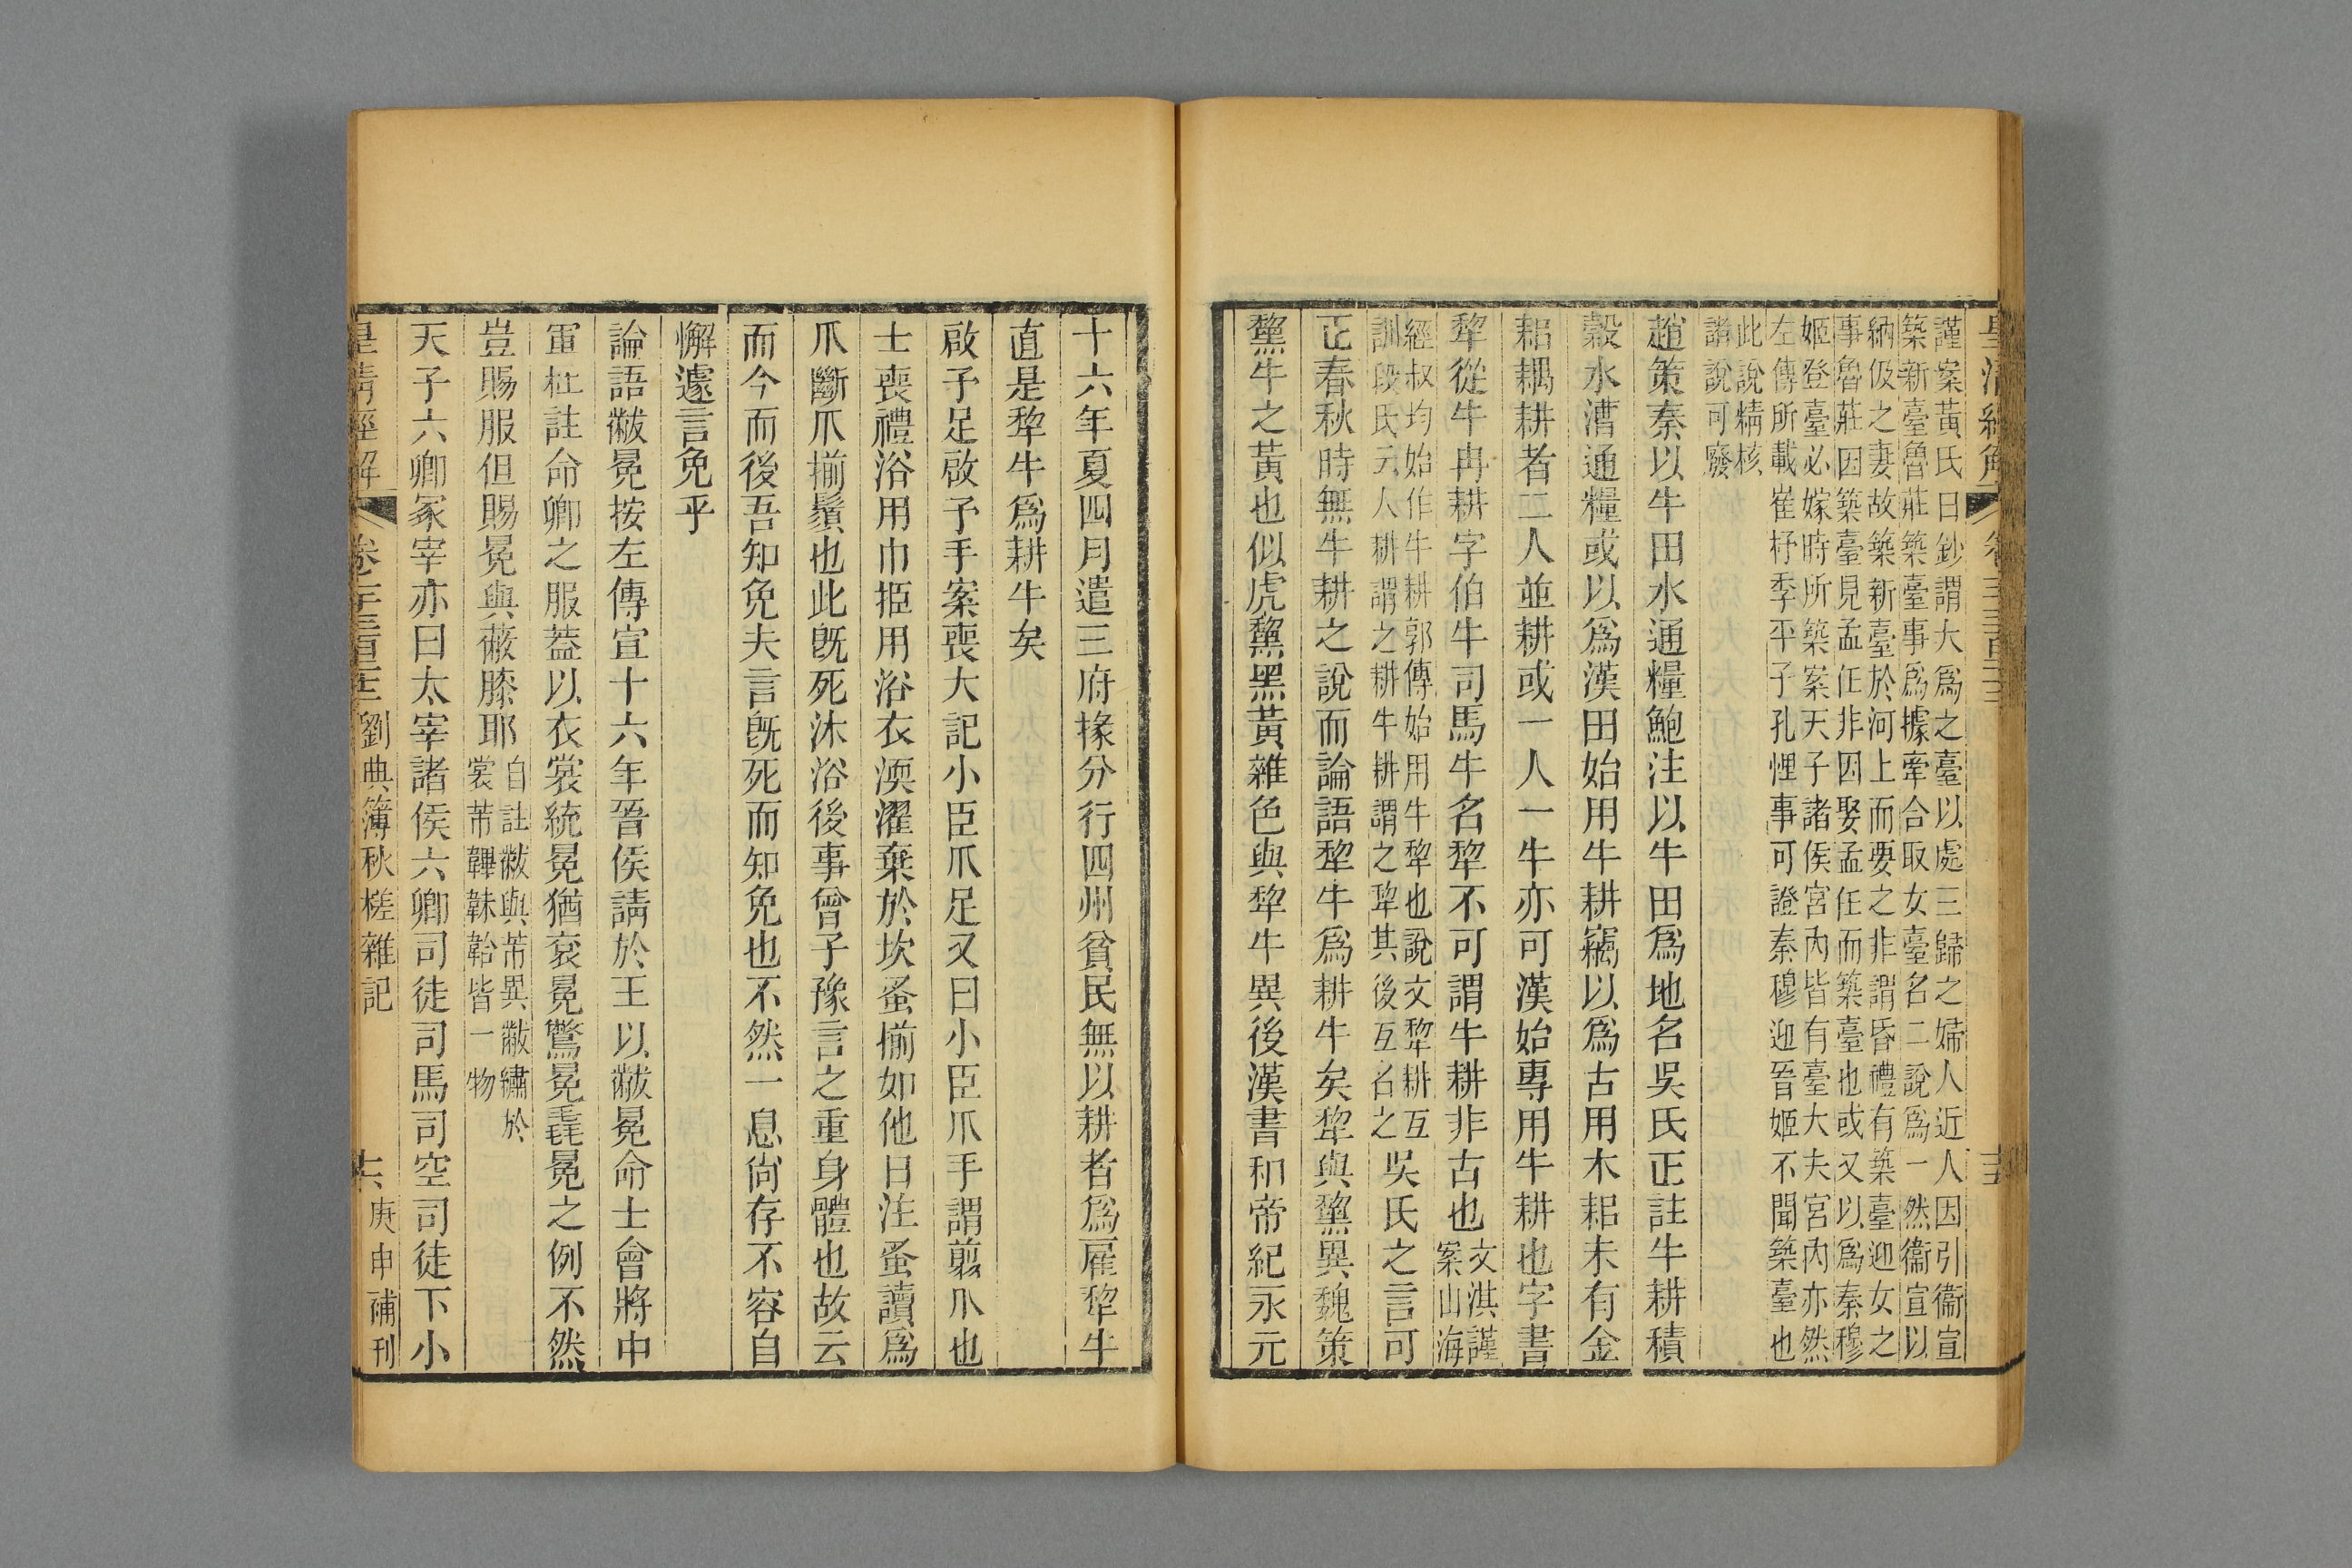 皇清經解
十五
謹案黃氏日鈔謂大爲之臺以處三歸之婦人近人因引衞宣
築新臺魯莊築臺事爲據牽合取女臺名二說爲一然衞宣以
納伋之妻故築新臺於河上而要之非謂昏禮有築臺迎女之
事魯莊因築臺見孟任非因娶孟任而築臺也或又以爲秦穆
姬登臺必嫁時所築案天子諸侯宮內皆有臺大夫宮內亦然
左傳所載崔杼季平子孔悝事可證秦穆迎晉姬不聞築臺也
此說精核
諸說可廢
趙策秦以牛田水通糧鮑注以牛田爲地名吳氏正註牛耕積
穀水漕通糧或以爲漢田始用牛耕竊以爲古用木耜未有金
耜耦耕者二人並耕或一人一牛亦可漢始專用牛耕也字書
犂從牛冉耕字伯牛司馬牛名犂不可謂牛耕非古也
文淇謹
案山海
經叔均始作牛耕郭傳始用牛犂也說文犂耕互
訓段氏云人耕謂之耕牛耕謂之犂其後互名之
吳氏之言可
正春秋時無牛耕之說而論語犂牛爲耕牛矣犂與黧異魏策
黧牛之黃也似虎黧黑黃雜色與犂牛異後漢書和帝紀永元
十六年夏四月遣三府掾分行四州貧民無以耕者爲雇犂牛
直是犂牛爲耕牛矣
啟予足啟予手案喪大記小臣爪足又曰小臣爪手謂翦爪也
士喪禮浴用巾挋用浴衣渜濯棄於坎蚤揃如他日注蚤讀爲
爪斷爪揃鬚也此旣死沐浴後事曾子豫言之重身體也故云
而今而後吾知免夫言旣死而知免也不然一息尙存不容自
懈遽言免乎
論語黻冕按左傳宣十六年晉侯請於王以黻冕命士會將中
軍杜註命卿之服葢以衣裳統冕猶袞冕鷩冕毳冕之例不然
豈賜服但賜冕與蔽膝耶
自註黻與芾異黻繡於
裳芾韠韎韐皆一物
天子六卿冢宰亦曰太宰諸侯六卿司徒司馬司空司徒下小
皇清經解
卷一千三百二十三
劉典簿秋槎雜記
十六
庚申補刊